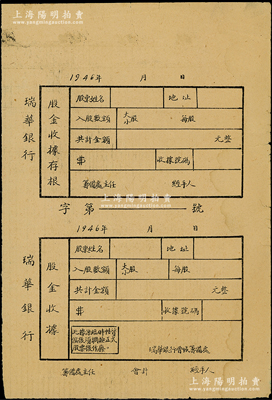 上海陽明拍賣
www.sh-ym.com
1946年 月 日
瑞華銀行
股金收據存根
股東姓名 地址
入股數額 大小股 每股
共計金額 元整
票 收據號碼
籌備處主任 經手人
字第 號
1946年 月 日
瑞華銀行
股金收據
股東姓名 地址
入股數額 大小股 每股
共計金額 元整
收據號碼
瑞華銀行籌備處
籌備處主任 會計 經手人